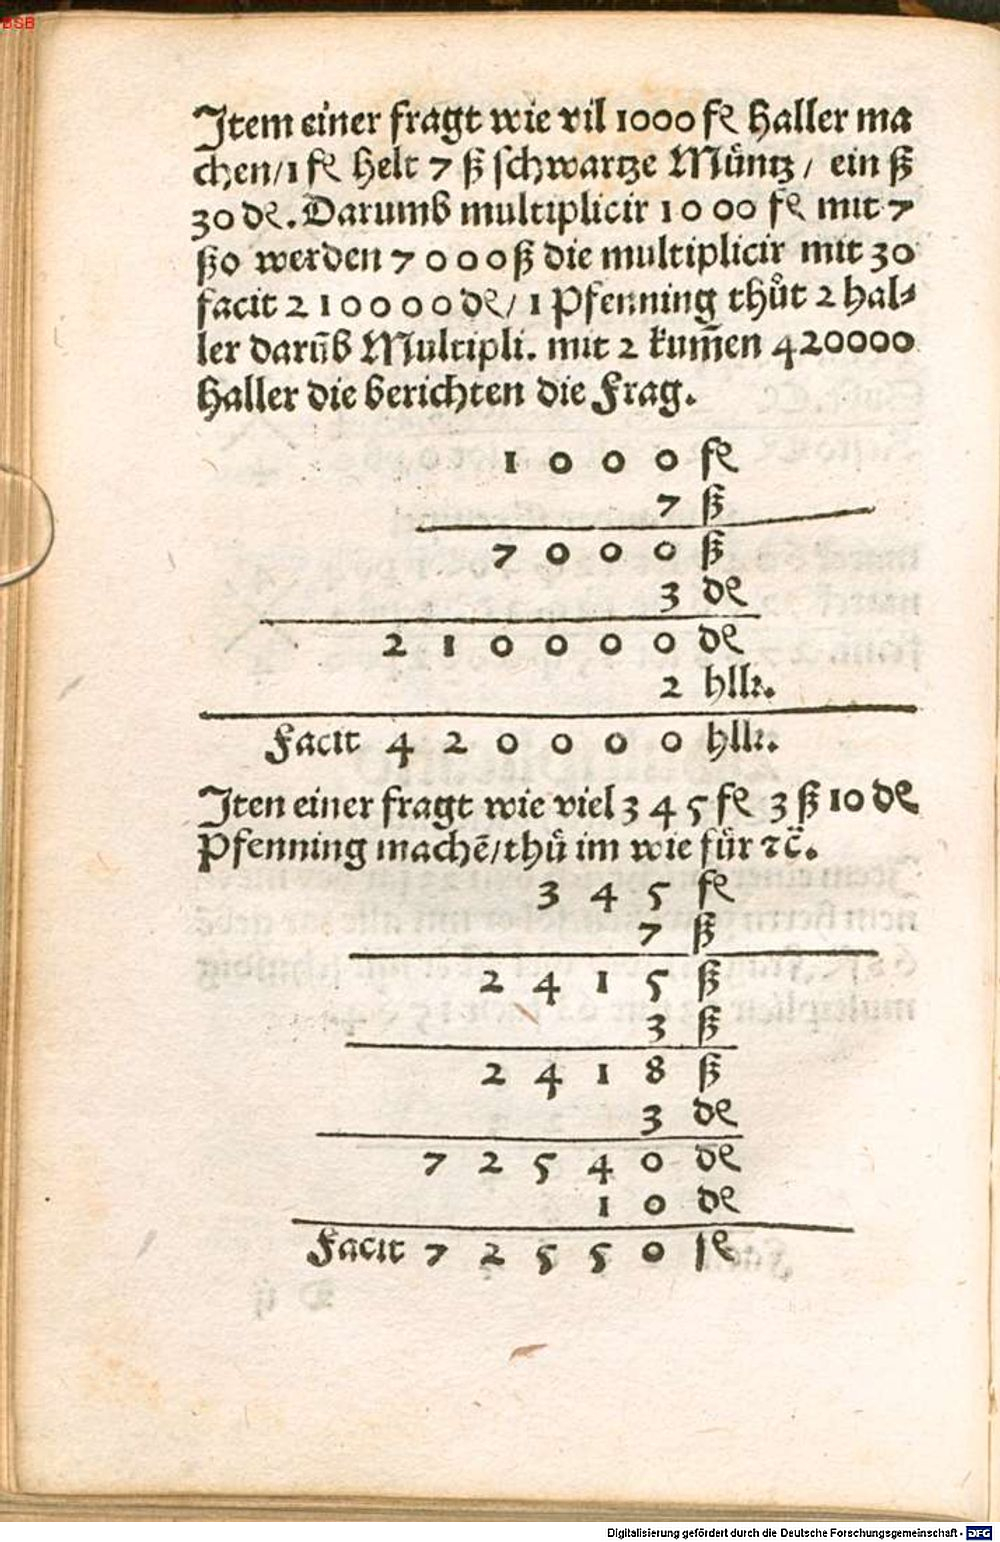 BSB
Item einer fragt wie vil 1000 fl Haller ma
chen/1 fl helt 7 ß schwartze Müntz/ ein ß
30 ₰. Darumb multiplicir 1000 fl mit 7
ßo werden 7000 ß die multiplicir mit 30
facit 210000 ₰/ 1 Pfenning thůt 2 hal⸗
ler darũb Multipli. mit 2 kum̃en 420000
Haller die berichten die Frag.
1 0 0 0 fl
7 ß
7 0 0 0 ß
3 ₰
2 1 0 0 0 0 ₰
2 hllr.
Facit 4 2 0 0 0 0 hllr.
Iten einer fragt wie viel 3 4 5 fl 3 ß 10 ₰
Pfenning machẽ/thů im wie fůr ⁊c̃.
3 4 5 fl
7 ß
2 4 1 5 ß
3 ß
2 4 1 8 ß
3 ₰
7 2 5 4 0 ₰
1 0 ₰
Facit 7 2 5 5 0 fl
Digitalisierung gefördert durch die Deutsche Forschungsgemeinschaft - DFG